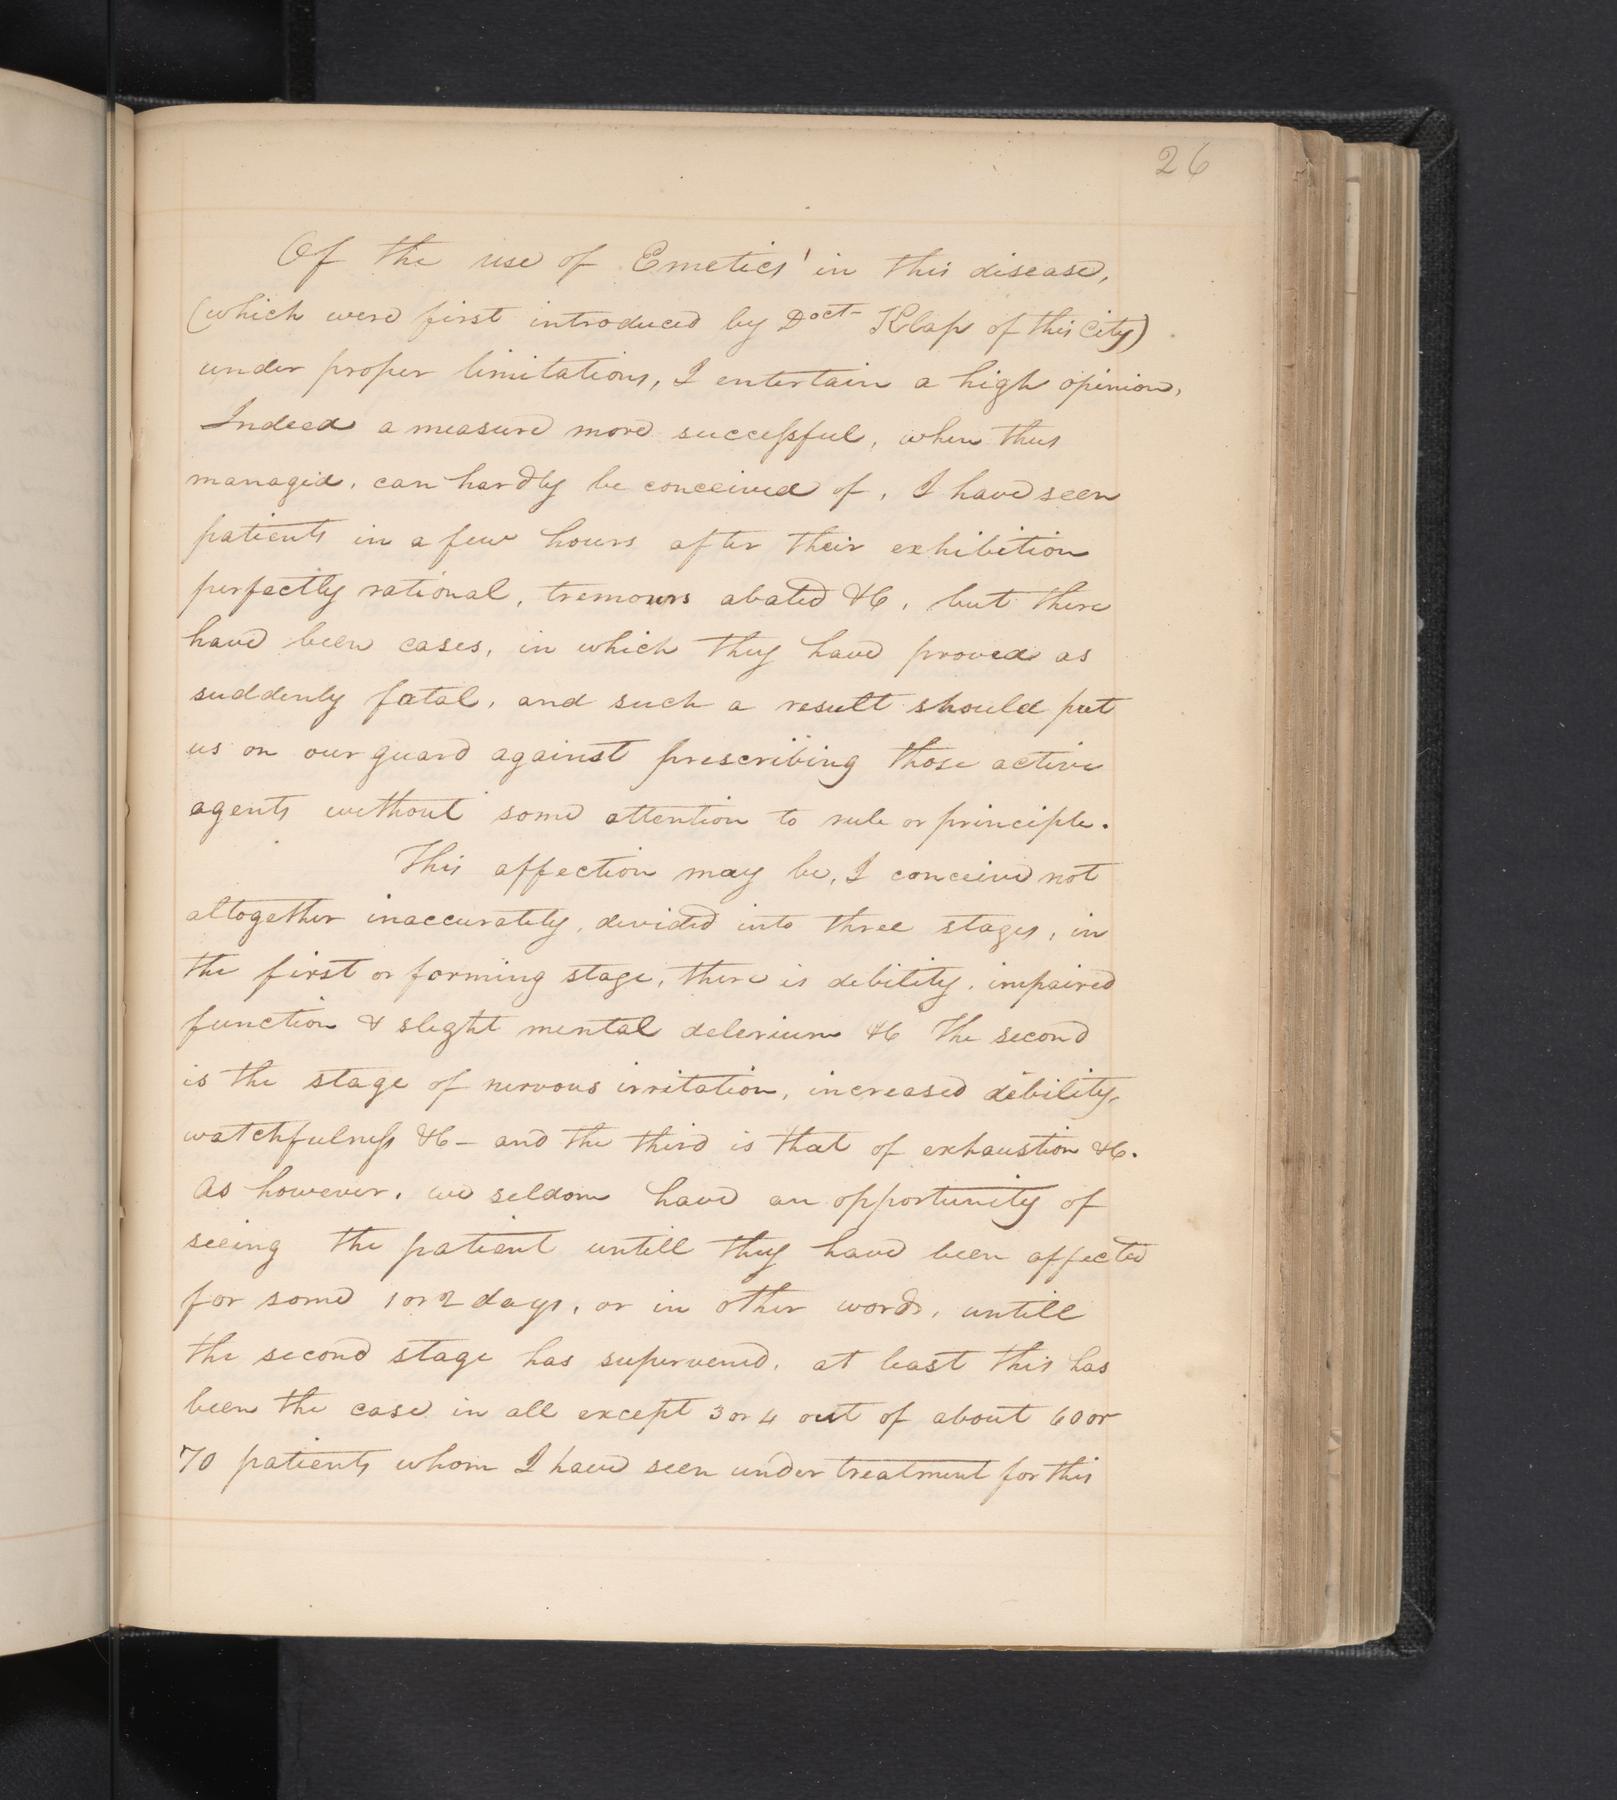 26
Of the use of Emetics' in this disease,
(which were first introduced by Doct- Klap of this City)
under proper limitations, I entertain a high opinion,
Indeed a measure more successful, when thus
managed, can hardly be conceived of, I have seen
patients in a few hours after their exhibition
perfectly rational, tremours abated &c, but there
have been cases, in which they have proved as
suddenly fatal, and such a result should put
us on our guard against prescribing those active
agents without some attention to rule or principle.
This affection may be, I conceive not
altogether inaccurately, devided into three stages, in
the first or forming stage, there is debility, impaired
function & slight mental delerium &c The second
is the stage of nervous irritation, increased debility,
watchfulness &c - and the third is that of exhaustion &c.
As however, we seldom have an opportunity of
seeing the patient untill they have been affected
for some 1 or 2 days, or in other words, untill
the second stage has supervened, at least this has
been the case in all except 3 or 4 out of about 60 or
70 patients whom I have seen under treatment for this